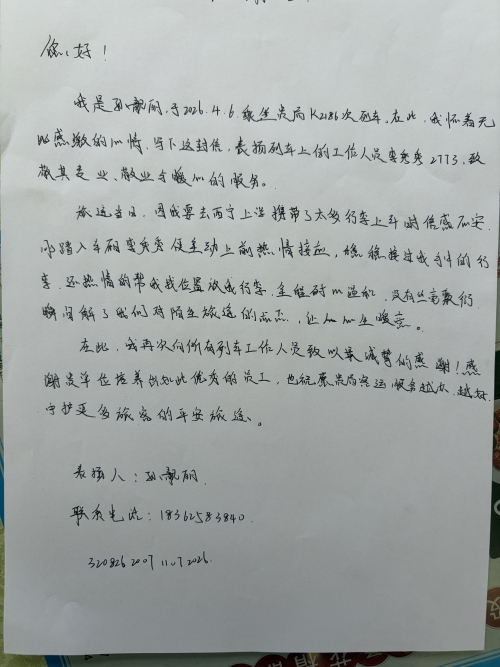 您好!
我是孙靓丽,于2026.4.6乘坐贵局K2186次列车,在此,我怀着无
比感激的心情,写下这封信,表扬列车上的工作人员 2773,致
敬其专业、敬业与暖心的服务。
旅途当日,因我要去西宁上学携带了太多行李上车时倍感不安
刚踏入车厢 便主动上前热情接应,稳稳接过我手中的行
李,还热情的帮我找位置放我行李,全程耐心温和,没有丝毫敷衍
瞬间解了我们对陌生旅途的忐忑,让人心生暖意。
在此,我再次向所有列车工作人员致以最诚挚的感谢!感
谢贵单位培养出如此优秀的员工,也祝愿贵局客运服务越办越好,
守护更多旅客的平安旅途、。
表扬人:孙靓丽.
联系电话:18362583840.
320826200711072026.